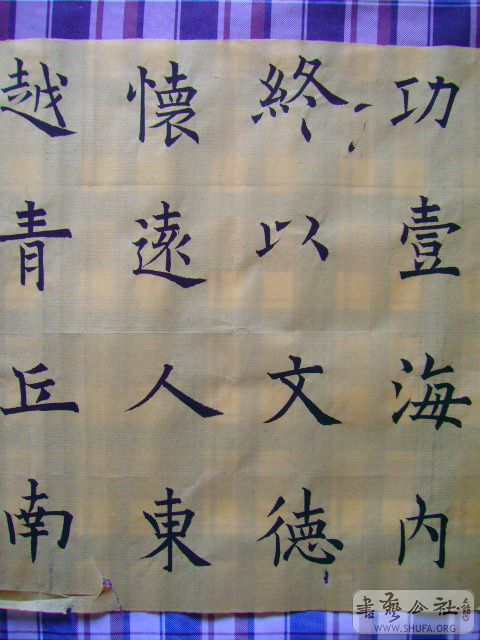 功壹海内
終以文德
懷遠人東
越青丘南
書藝公社
WWW.SHUFA.ORG